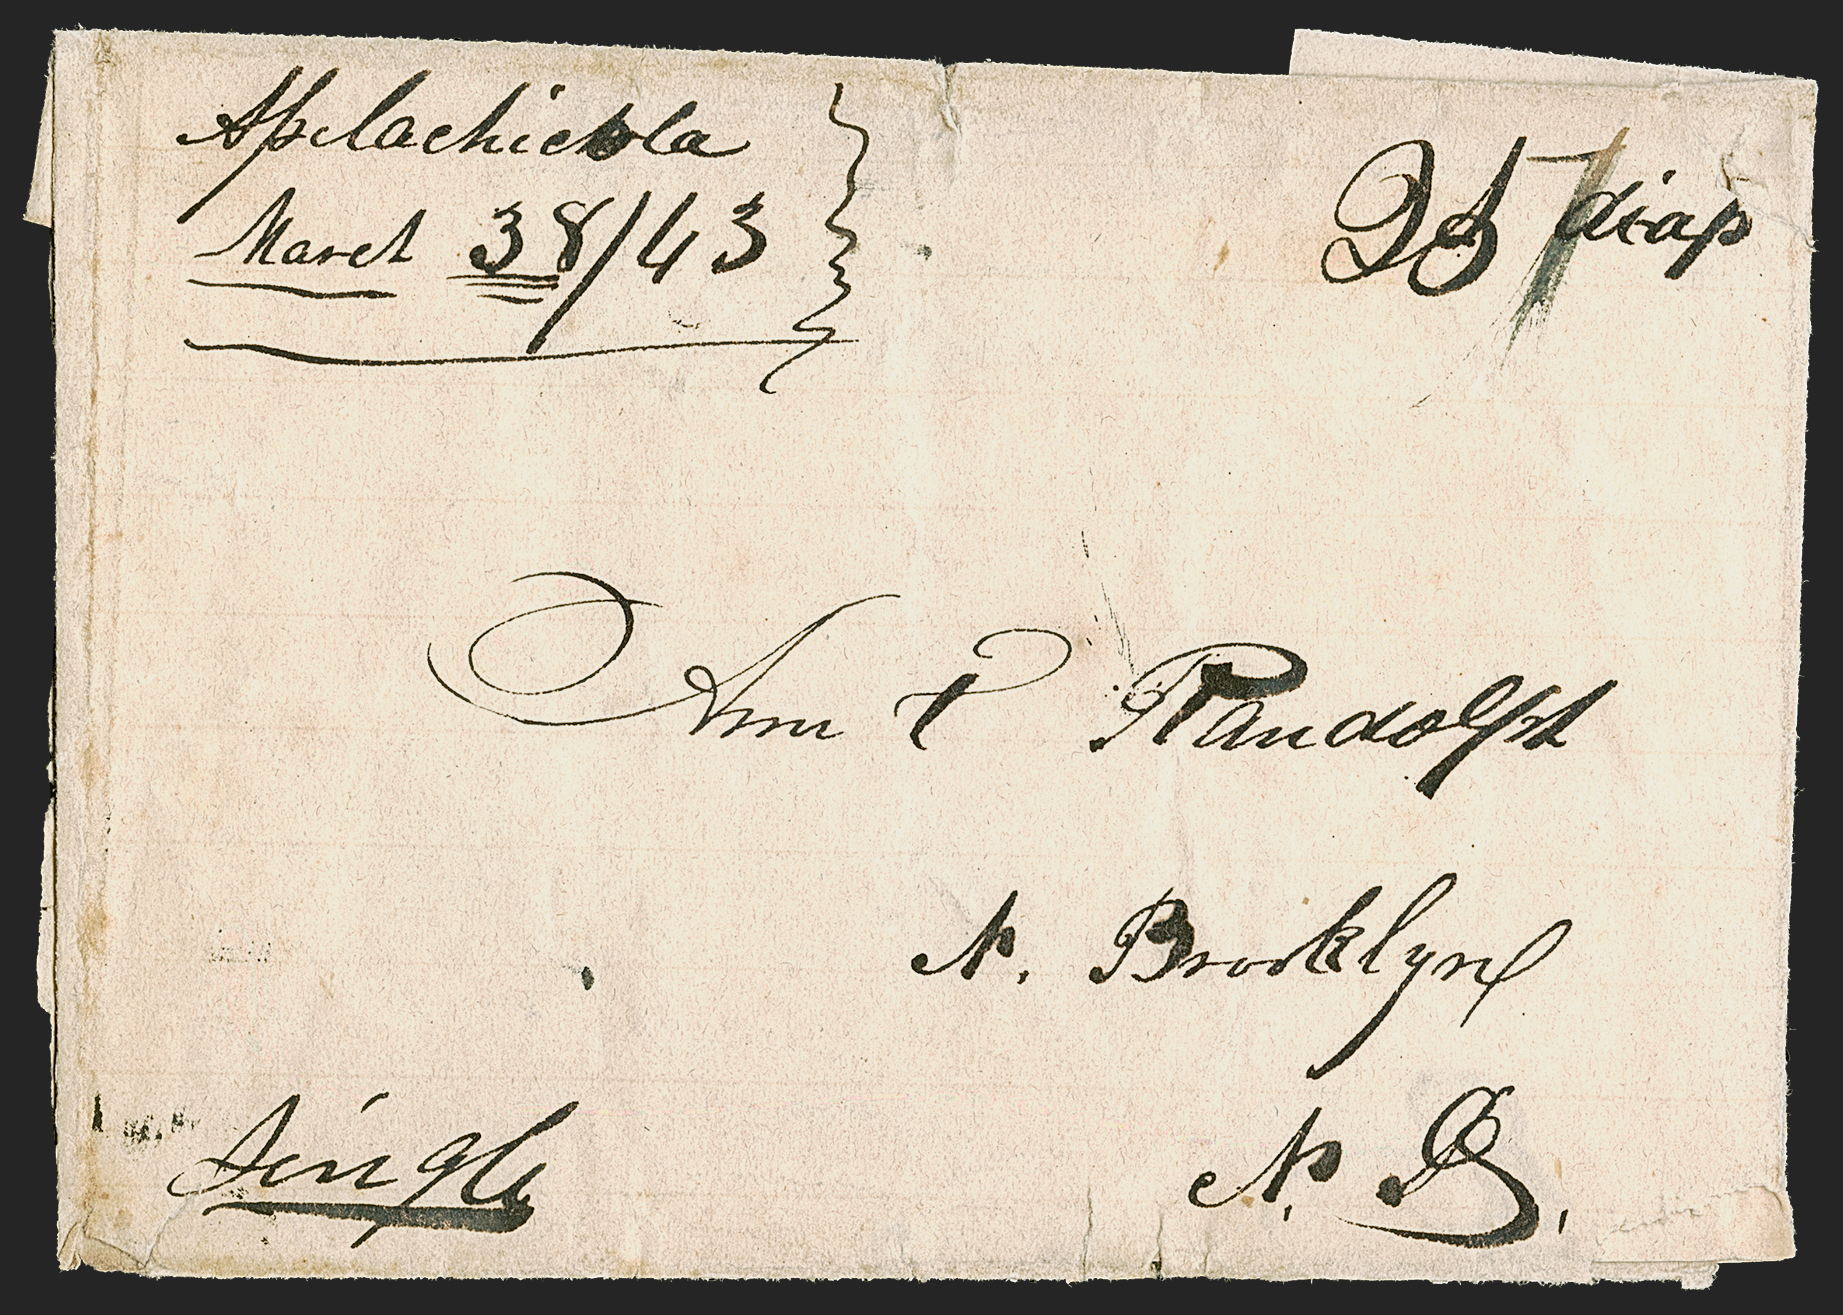 Apelachicola
March 38/43
25
Ann P Randolph
N. Brooklyn
N. Y.
Single